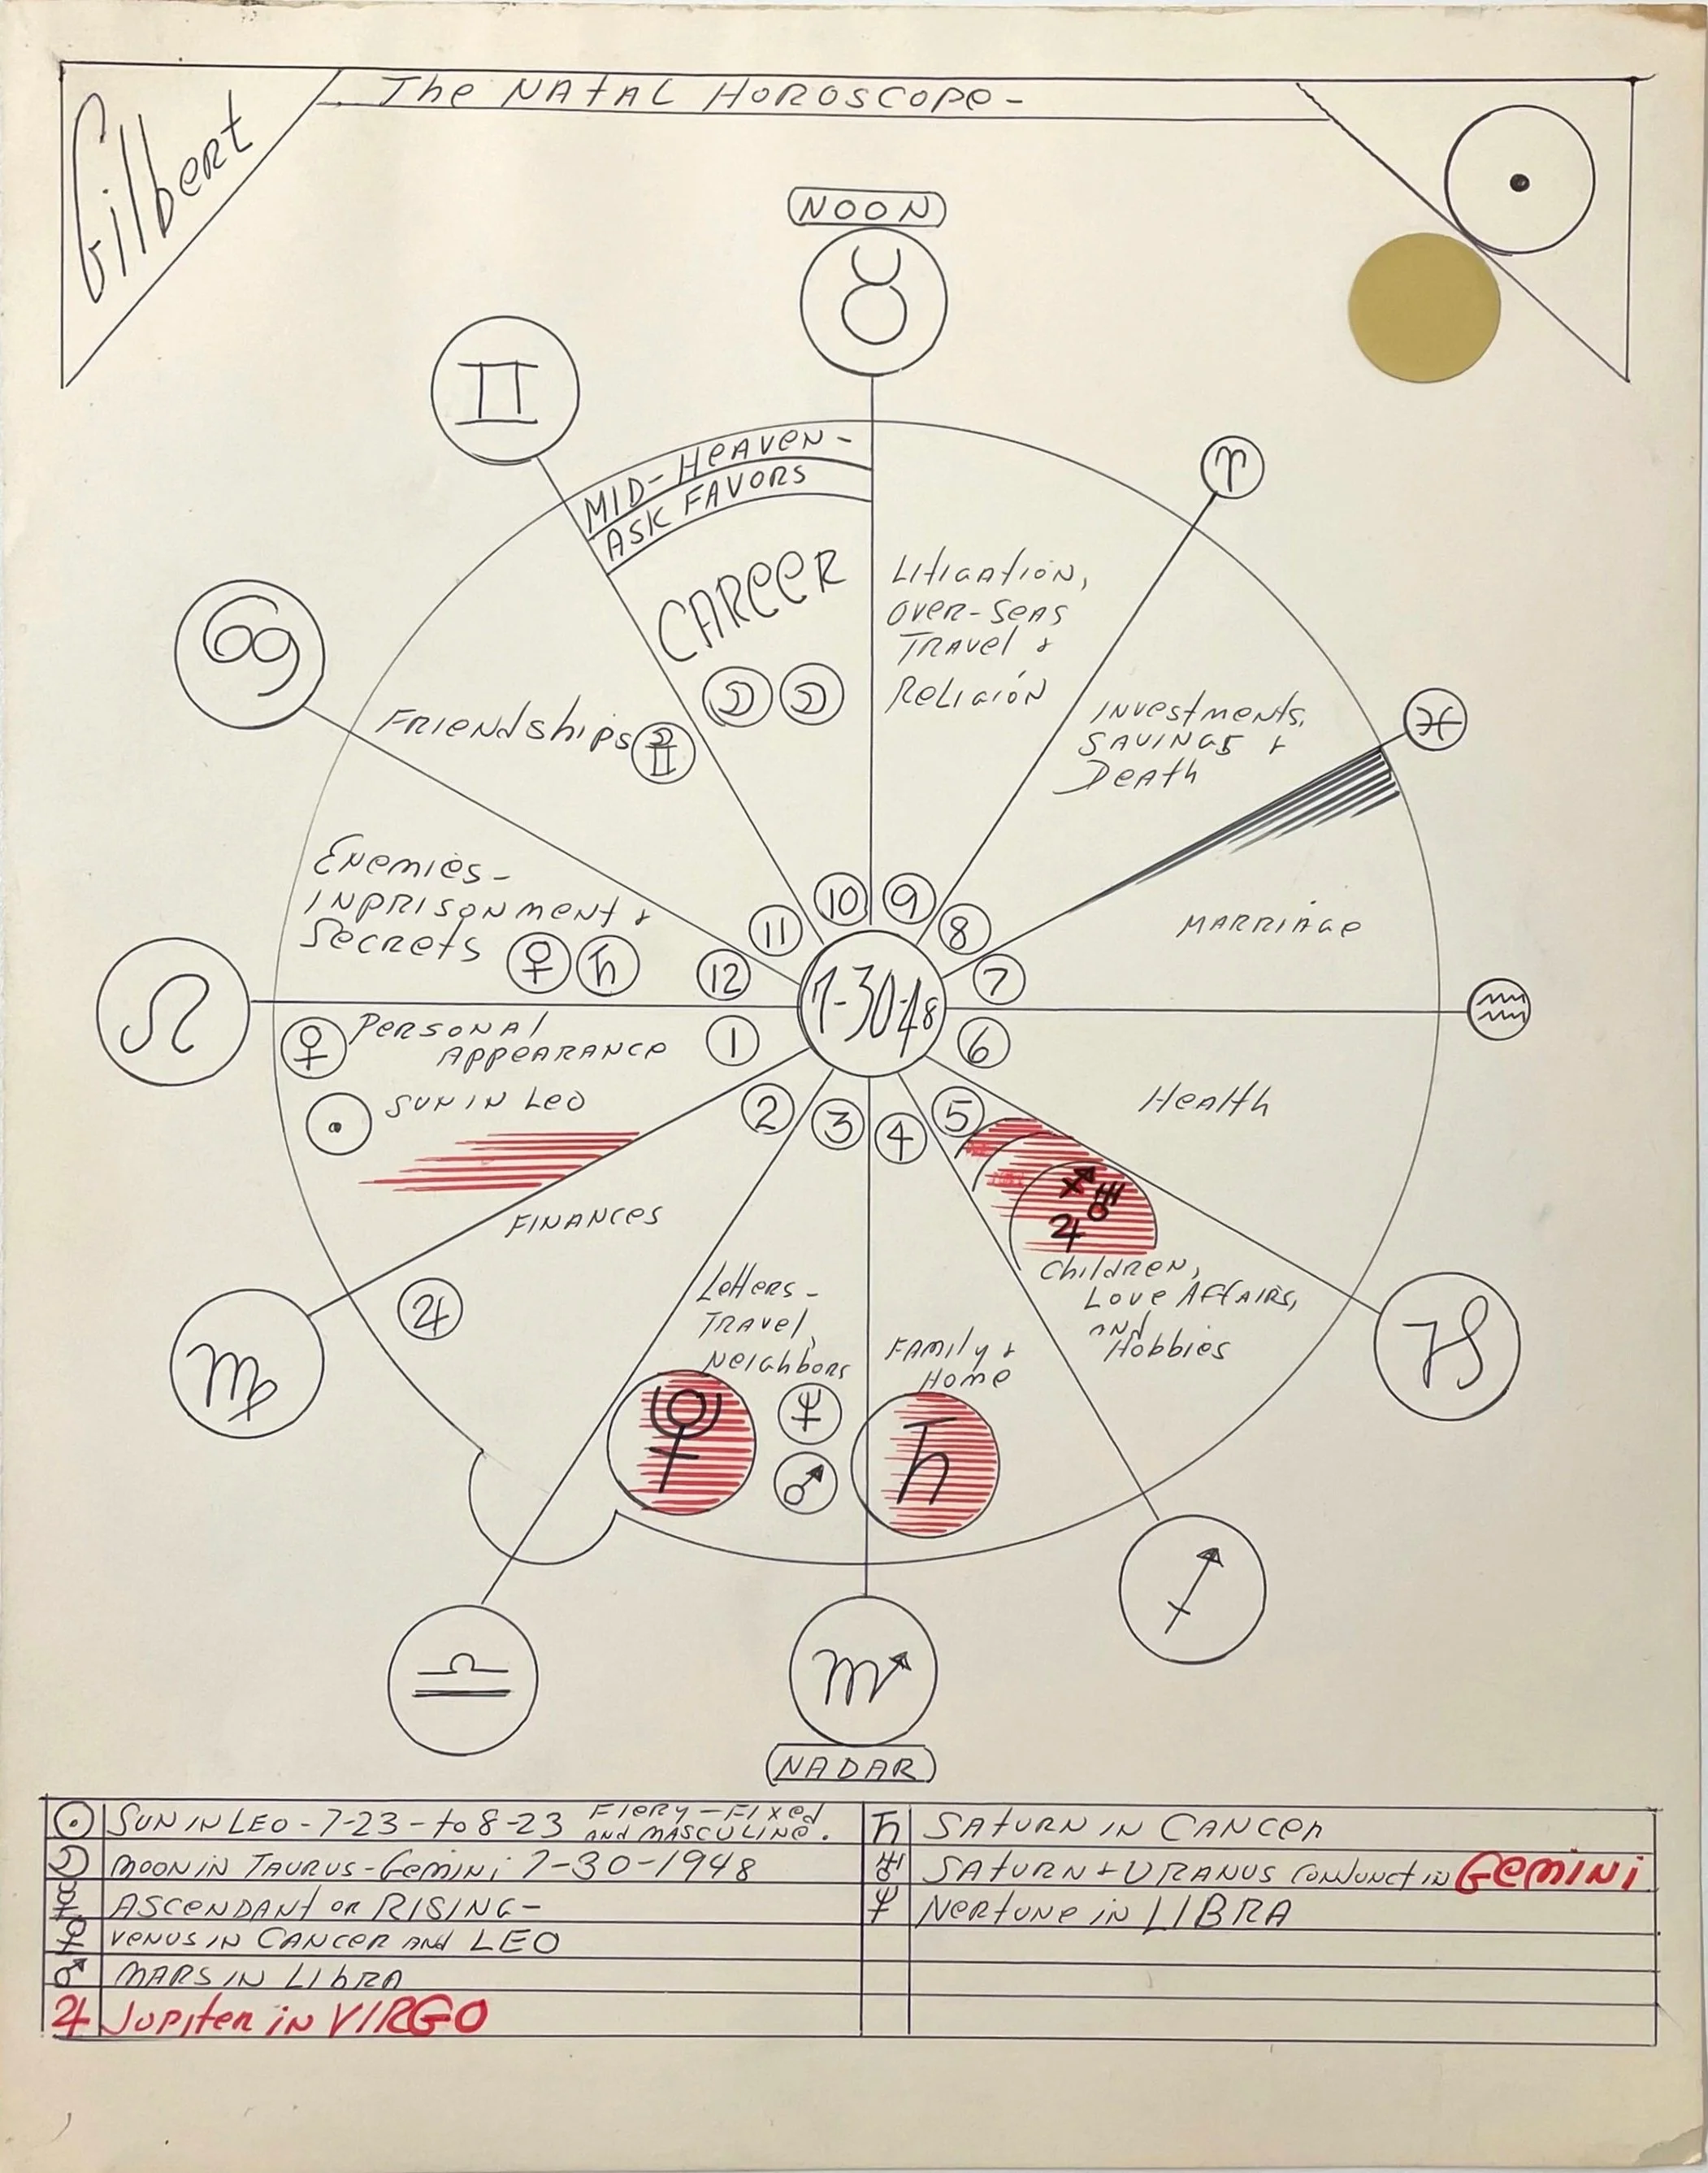 Gilbert
The NATAL HOROSCOPE-
NOON
♉
♊
♈
MID-HEAVEN-
ASK FAVORS
CAREER
LITIGATION,
OVER-SEAS
TRAVEL &
RELIGION
♋
FRIENDSHIPS
INVESTMENTS,
SAVINGS &
DEATH
♓
ENEMIES-
INPRISONMENT &
SECRETS ♀ ♄
MARRIAGE
10 9
11 8
12 7
♌
7-30-48
♒
1 6
2 3 4 5
♀ PERSONAL
APPEARANCE
☉ SUN IN LEO
HEALTH
FINANCES
♐ ♅
♃
♃
LETTERS-
TRAVEL,
NEIGHBORS
FAMILY &
HOME
CHILDREN,
LOVE AFFAIRS,
AND
HOBBIES
♍
♆
♂
♄
♑
♎
♏
♐
NADAR
☉ SUN IN LEO-7-23-to 8-23 FIERY-FIXED
AND MASCULINE.
MOON IN TAURUS-GEMINI 7-30-1948
ASCENDANT OR RISING-
VENUS IN CANCER AND LEO
♂ MARS IN LIBRA
♃ JUPITER IN VIRGO
♄ SATURN IN CANCER
♅ SATURN & URANUS CONJUNCT IN GEMINI
♆ NEPTUNE IN LIBRA